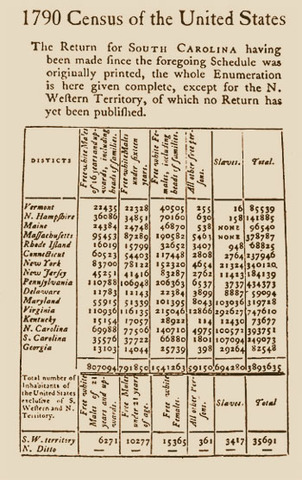 1790 Census of the United States
The Return for SOUTH CAROLINA having
been made ſince the foregoing Schedule was
originally printed, the whole Enumeration
is here given complete, except for the N.
Weſtern Territory, of which no Return has
yet been publiſhed.
DISTRICTS Free white Males of 16 years and upwards, including heads of families. Free white Males under ſixteen years. Free white Females, including heads of families. All other free perſons. Slaves. Total.
Vermont 22435 22328 40505 255 16 85539
N. Hampſhire 36086 34851 70160 630 158 141885
Maine 24384 24748 46870 538 NONE 96540
Maſſachuſetts 95453 87289 190582 5463 NONE 378787
Rhode Iſland 16019 15799 32652 3407 948 68825
Connecticut 60523 54403 117448 2808 2764 237946
New York 83700 78122 152320 4654 21324 340120
New Jerſey 45251 41416 83287 2762 11423 184139
Pennſylvania 110788 106948 206363 6537 3737 434373
Delaware 11783 12143 22384 3899 8887 59094
Maryland 55915 51339 101395 8043 103036 319728
Virginia 110936 116135 215046 12866 292627 747610
Kentucky 15154 17057 28922 114 12430 73677
N. Carolina 69988 77506 140710 4975 100571 393751
S. Carolina 35576 37722 66880 1801 107094 249073
Georgia 13103 14044 25739 398 29264 82548
807094 791850 1541263 59150 694280 3893635
Total number of
Inhabitants of
the United States
excluſive of S.
Weſtern and N.
Territory.
Free white Males of 21 years and upwards. Free Males under 21 years of age. Free white Females. All other perſons. Slaves. Total
S.W. territory 6271 10277 15365 361 3417 35691
N. Ditto — — — — — —